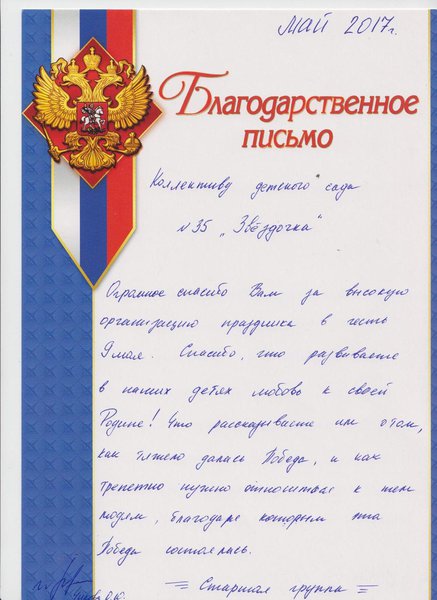 МАЙ 2017г.
Благодарственное
письмо
Коллективу детского сада
№35 „Звёздочка"
Огромное спасибо Вам за высокую
организацию праздника в честь
9 мая. Спасибо, что развиваете
в наших детях любовь к своей
Родине! Что рассказываете им о том,
как тяжело далась Победа, и как
трепетно нужно относиться к тем
людям, благодаря которым эта
Победа состоялась.
Старшая группа